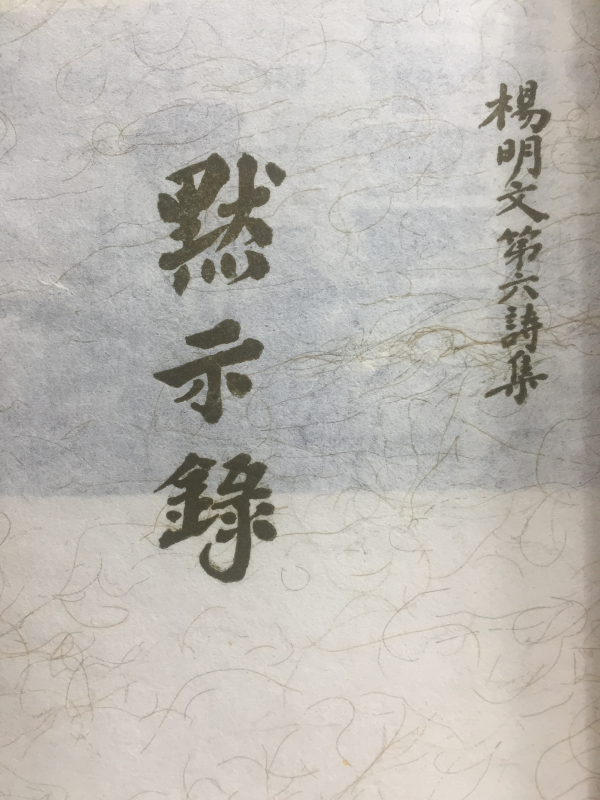 楊明文第六詩集
默示錄